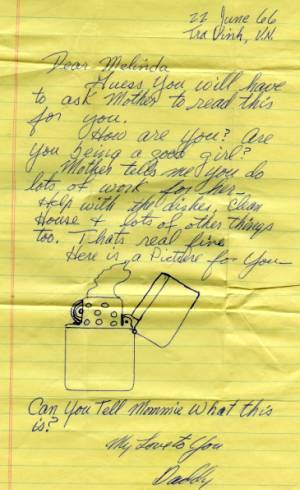 22 June 66
Tra Vinh, V.N.
Dear Melinda
Guess You will have
to ask Mother to read this
for you.
How are you? Are
you being a good girl?
Mother tells me you do
lots of work for her.
Help with the dishes, Clean
House & lots of other things
too. Thats real fine
Here is a Picture for You
Can You Tell Mommie What this
is?
My Love to You
Daddy